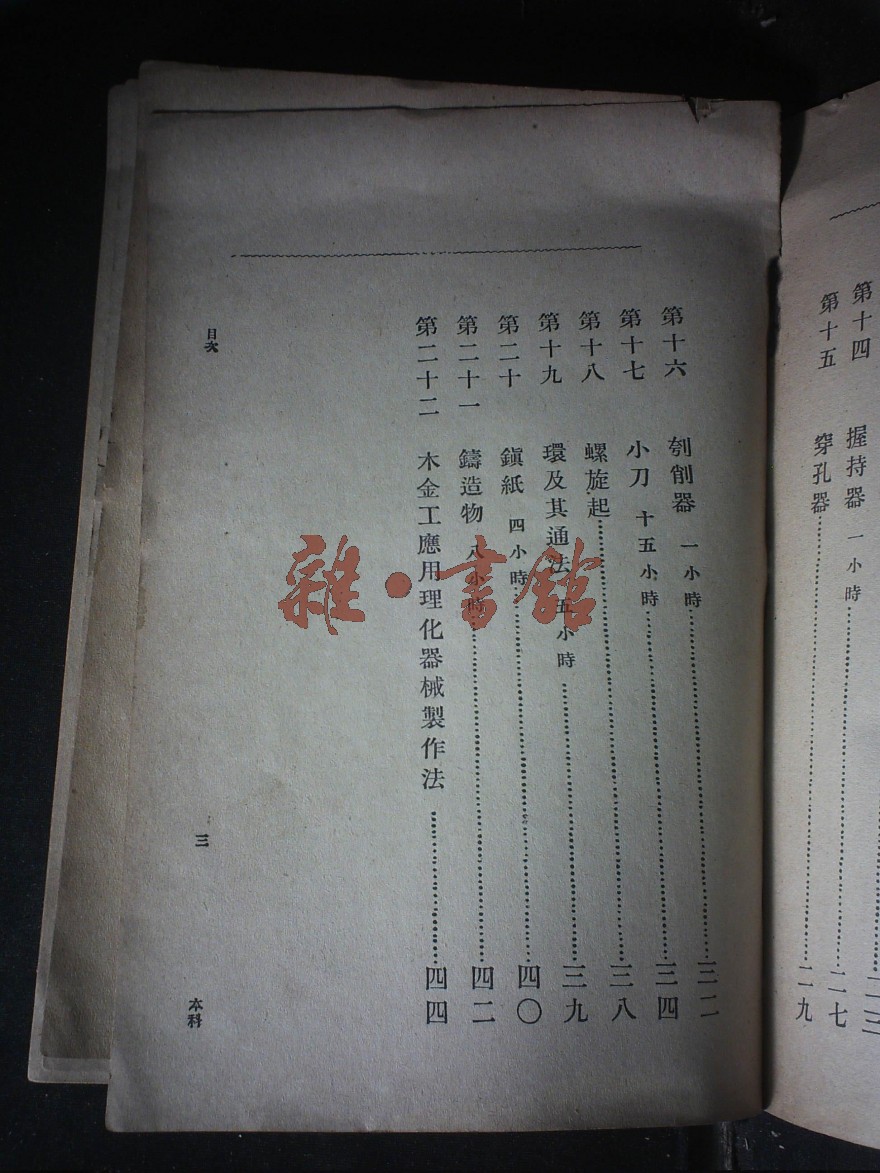 第十四 握持器 一小時 二七
第十五 穿孔器 二九
第十六 刳削器 一小時 三二
第十七 小刀 十五小時 三四
第十八 螺旋起 三八
第十九 環及其通法 五小時 三九
第二十 鎭紙 四小時 四〇
第二十一 鑄造物 八小時 四二
第二十二 木金工應用理化器械製作法 四四
目次
三
本科
雜·書館